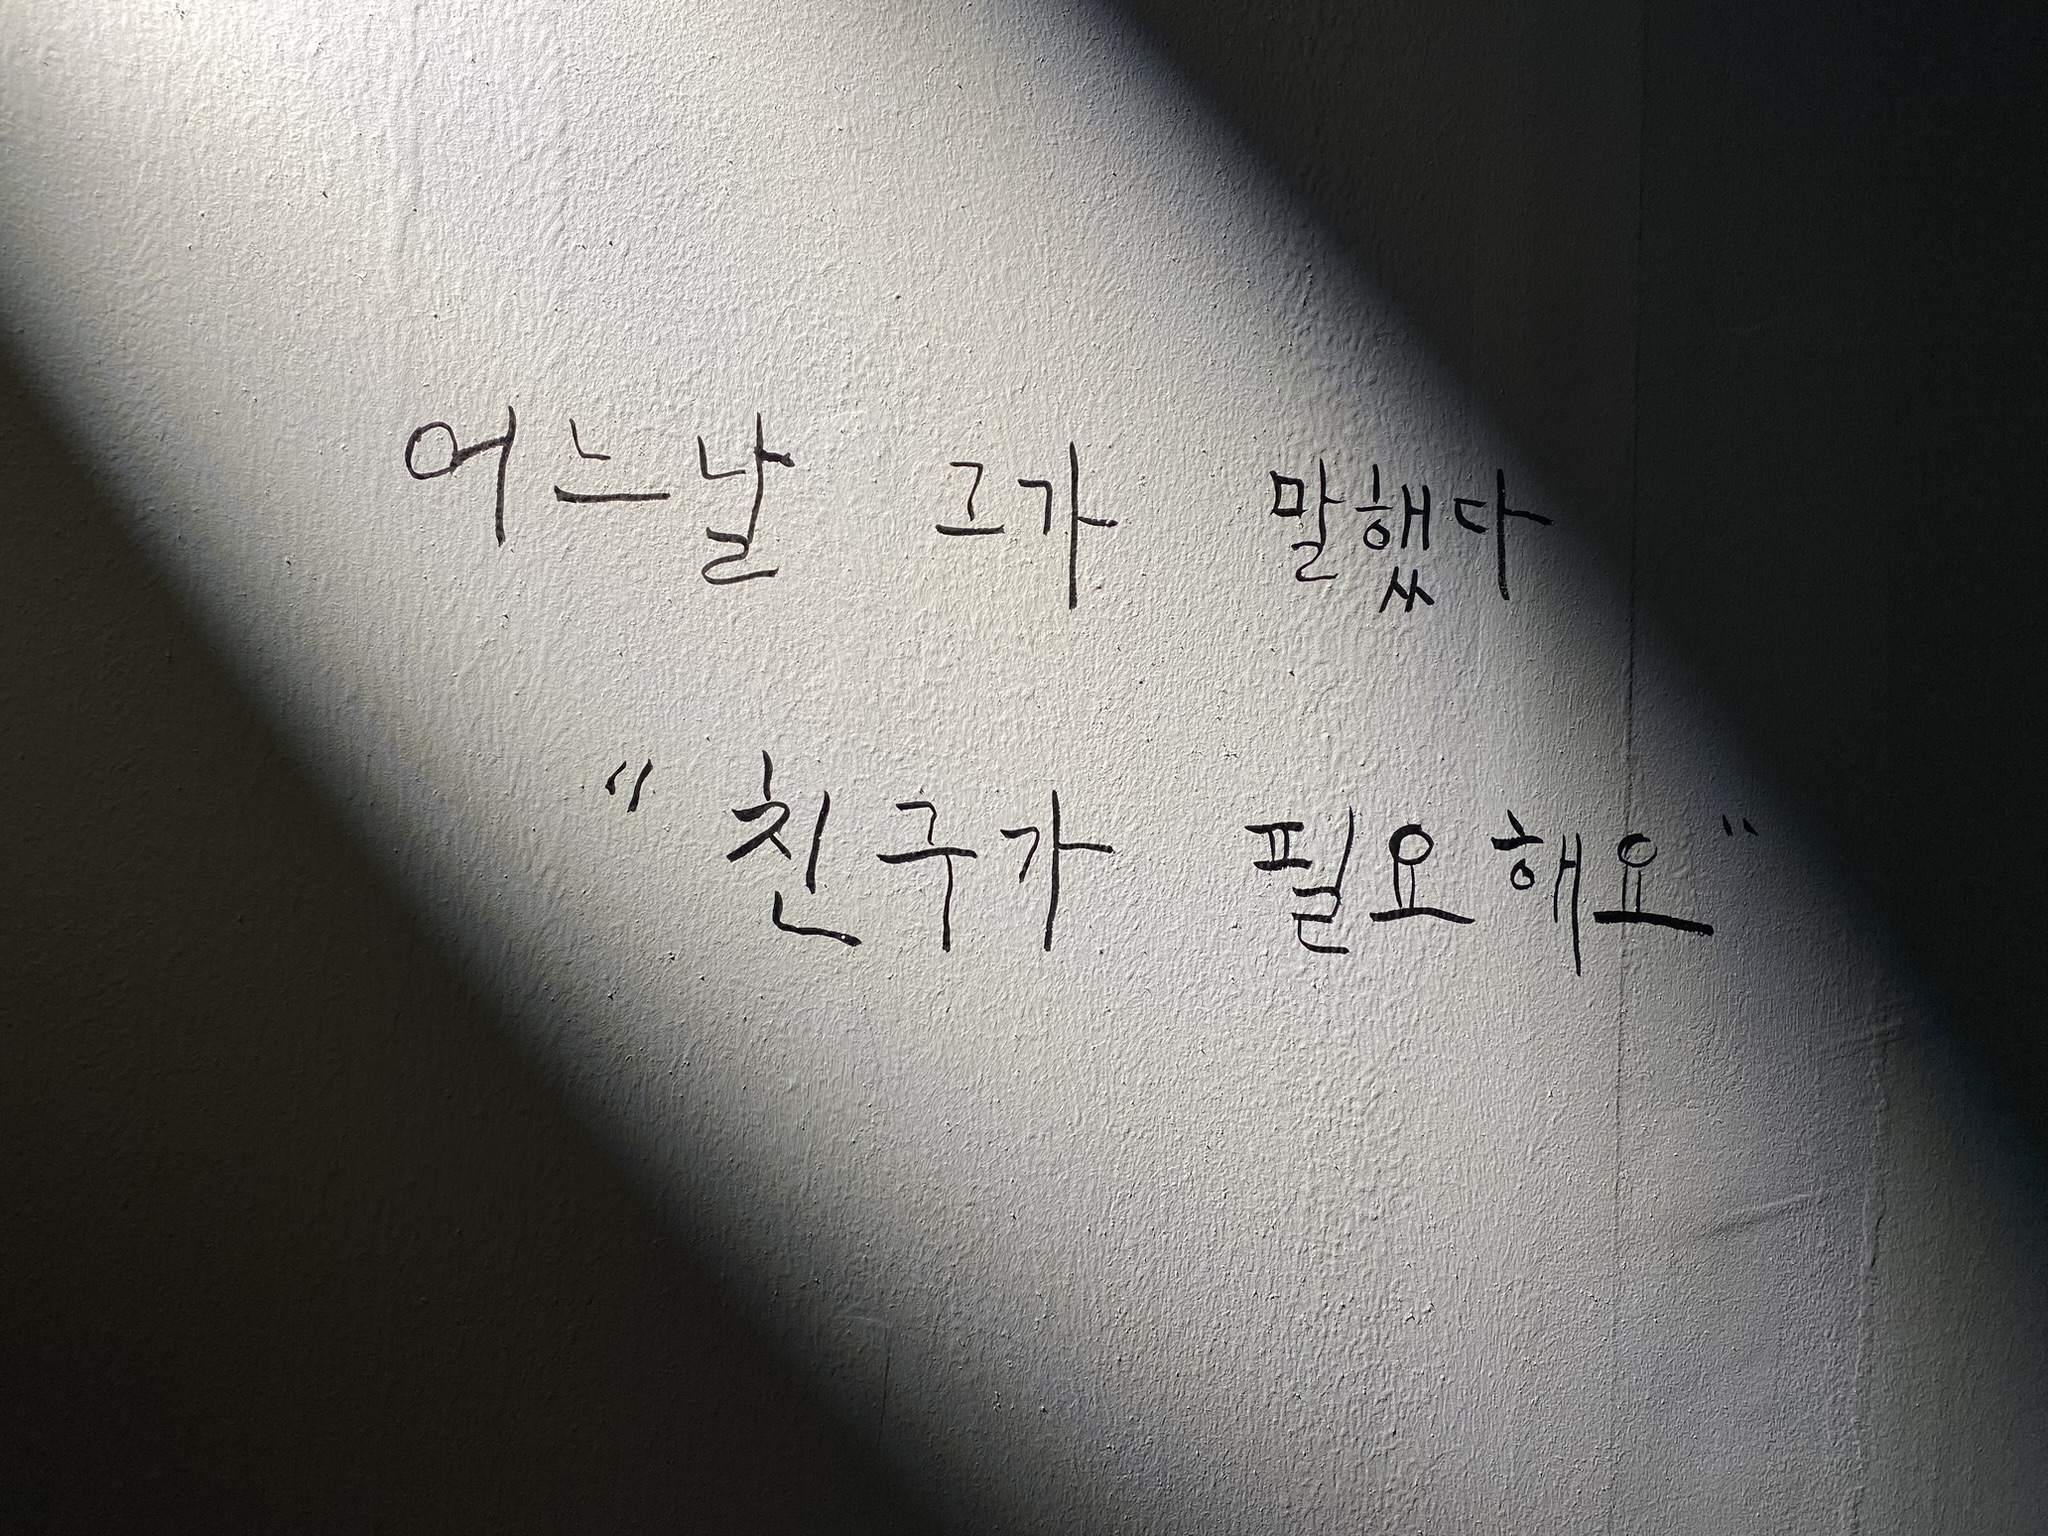 어느날 그가 말했다
"친구가 필요해요"